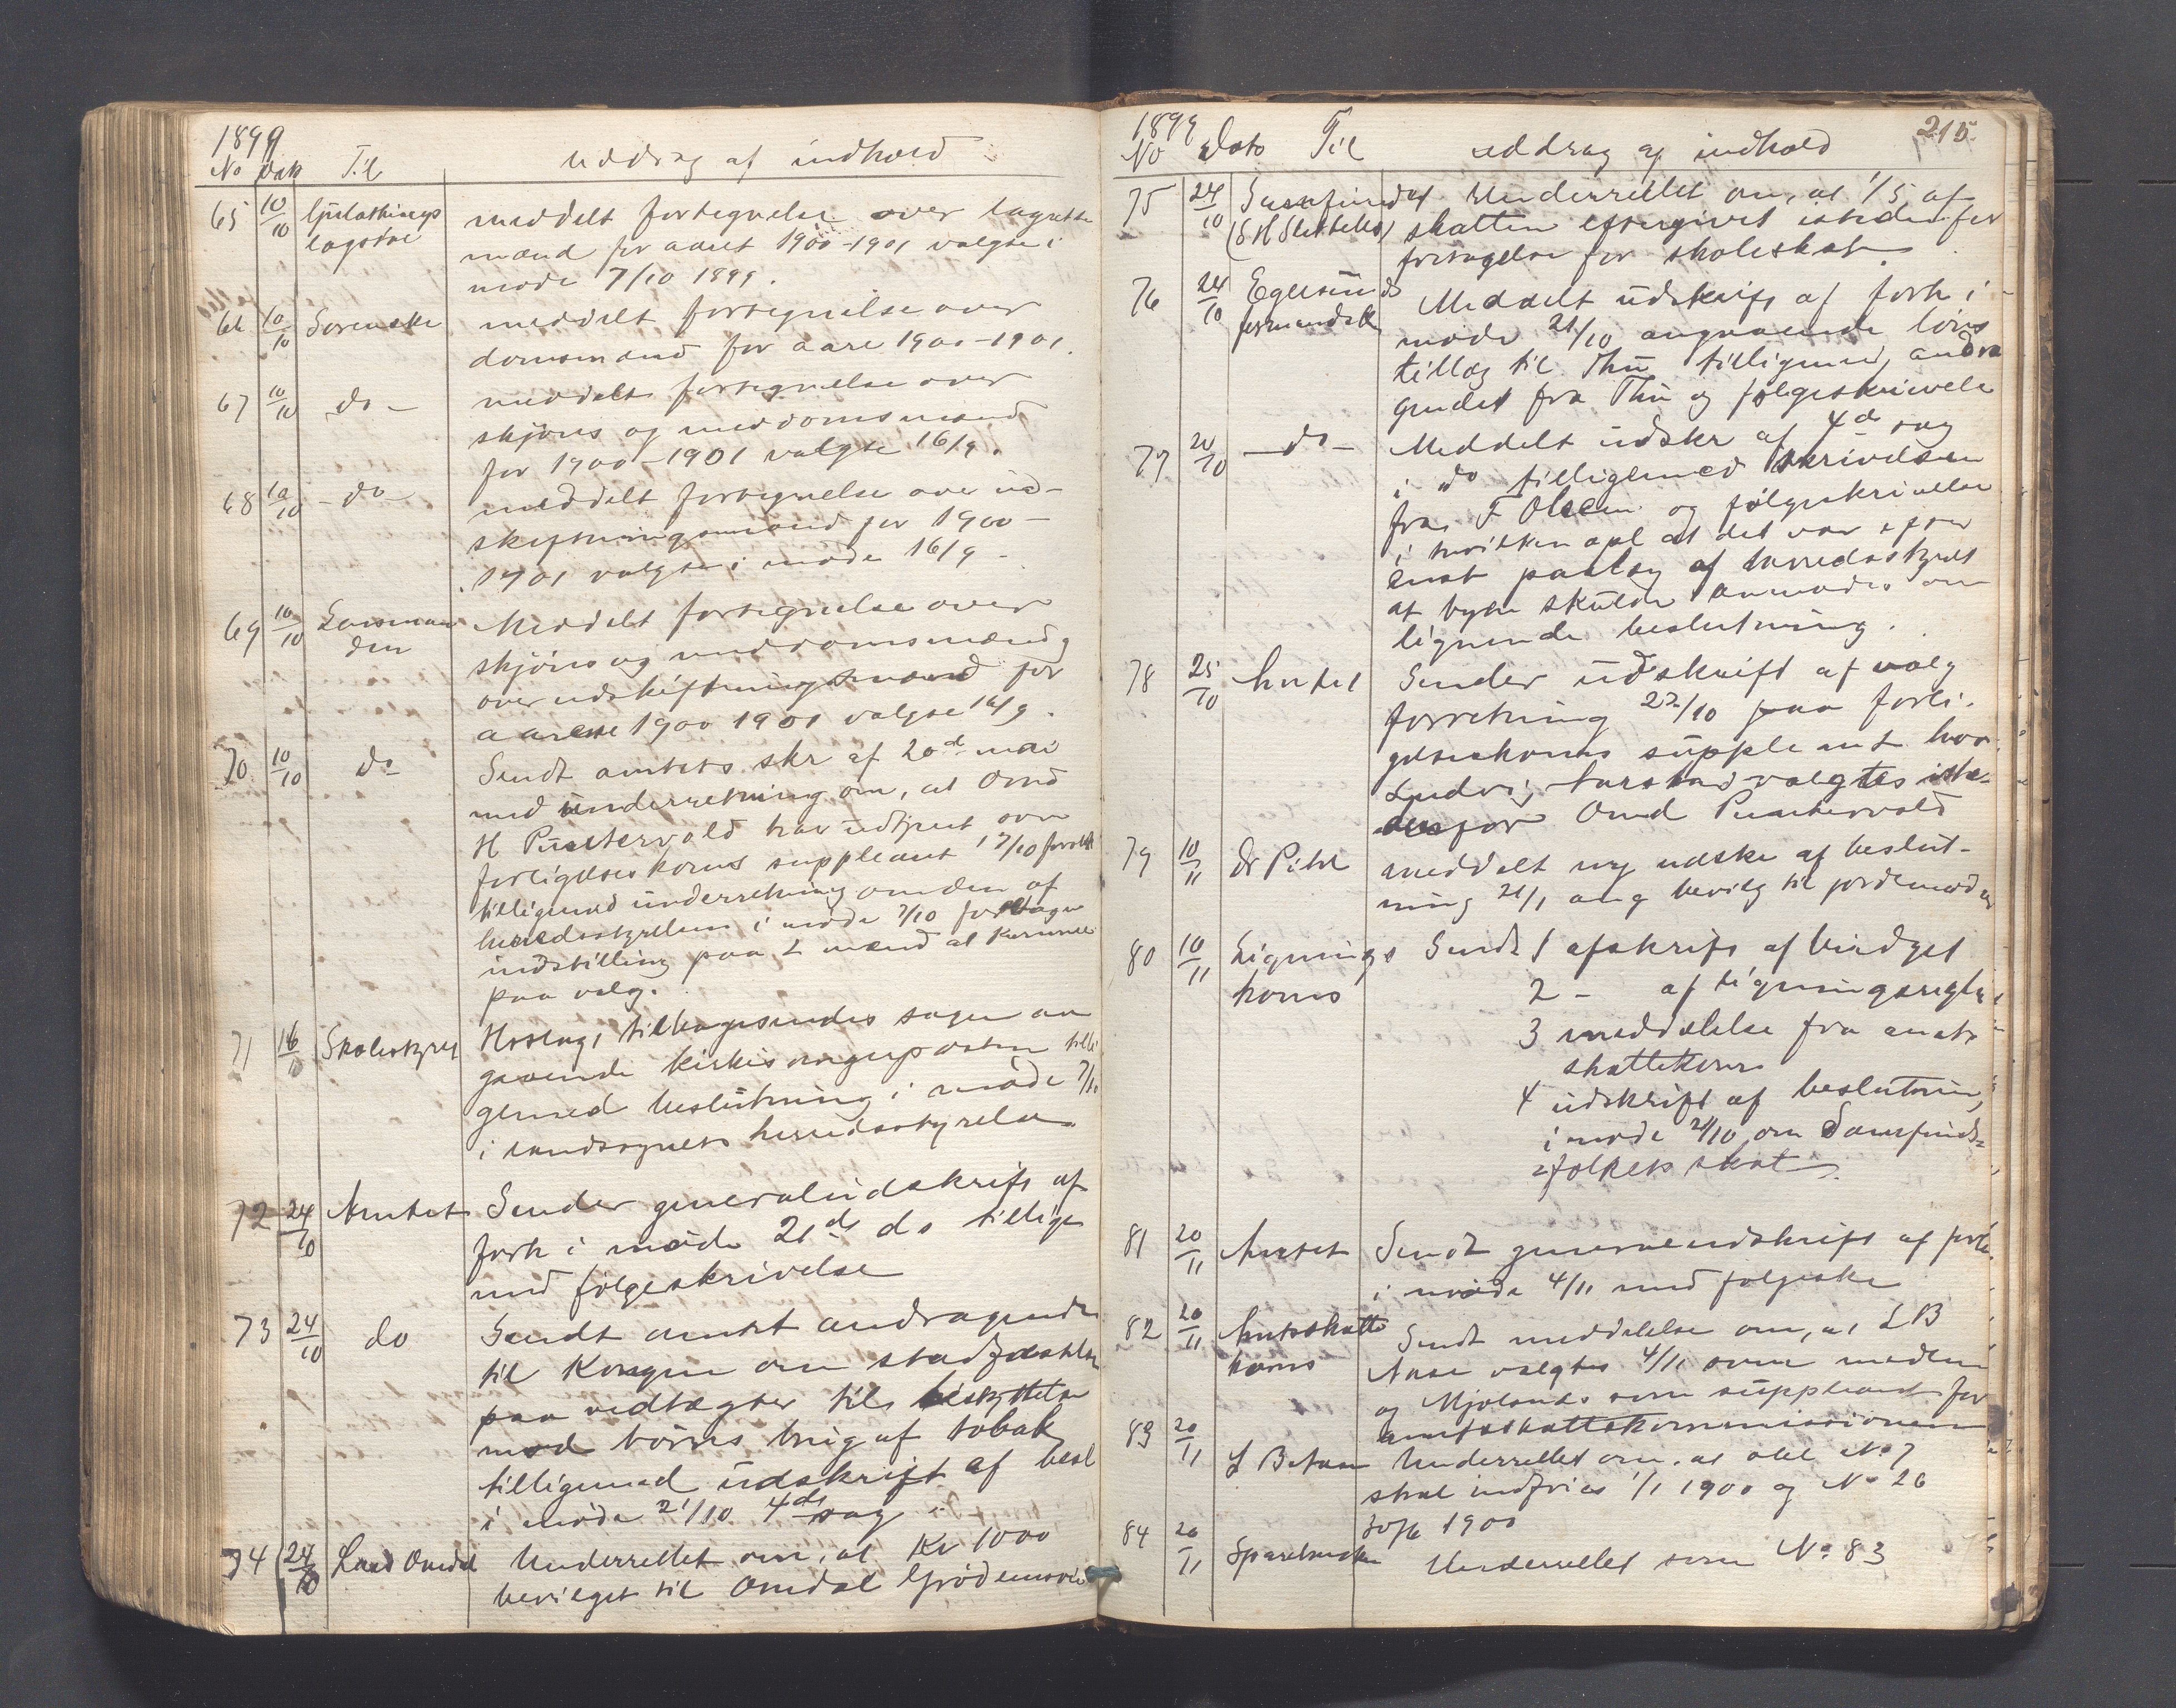 1899
No Dato Til Uddrag af indhold
65 10/10 Gulathings
lagstol
meddelt fortegnelse over lagrette
mænd for aaret 1900-1901 valgte i
møde 7/10 1899.
66 10/10 Sorenskr
meddelt fortegnelse over
domsmænd for aare 1900-1901.
67 10/10 do -
meddelt fortegnelse over
skjøns og meddomsmænd
for 1900-1901 valgte 16/9.
68 10/10 - do -
meddelt fortegnelse over ud-
skiftningsmænd for 1900-
1901 valgte i møde 16/9 -
69 10/10 Lensman
den
Meddelt fortegnelse over
skjøns og meddomsmænd og
over udskiftningsmænd for
aarene 1900 1901 valgte 16/9.
70 10/10 do
Sendt amtets skr af 20d mai
med underretning om, at Omd
H Puntervold har udtjent som
forligelseskoms suppleant 17/10
tilligemed underretning om den af
herredsstyrelsen i møde 7/10 foretagne
indstilling paa 2 mænd at
paa valg.
71 16/10 Skolestyret
Hoslagt tilbagesendes sagen an
gaaende kirkesangerposten tilli
gemed beslutning i møde 7/10
i landsognets herredsstyrelse
72 24/10 Amtet
Sender generaludskrift af
forh i møde 21de ds tillige
med følgeskrivelse
73 24/10 do
Sendt amtet andragende
til Kongen om stadfæstelse
paa vedtægter til beskyttelse
mod børns brug af tobak
tilligemed udskrift af besl
i møde 21/10 4de sag
74 24/10 Lars Omdal
Underrettet om, at Kr 1000
bevilget til Omdal Grødemsvei
1899 215.
No Dato Til uddrag af indhold
75 24/10 Samfundet
(S H Slettebø)
Underrettet om, at 1/5 af
skatten eftergivet istedenfor
fritagelse for skoleskat.
76 24/10 Egersunds
formandsk
Meddelt udskrift af forh i
møde 21/10 angaaende løns
tillæg til Thu tilligemed andra
gendet fra Thu og følgeskrivelse
77 24/10 - do -
Meddelt udskr af 4de sag
i do tilligemed skrivelsen
fra F Olsen og følgeskrivelse
i hvilken opl at det var efter
enst paalæg af herredsstyret
at byen skulde anmodes om
lignende beslutning.
78 25/10 Amtet
Sender udskrift af valg
forretning 22/10 paa forli-
gelseskoms suppleant hvor
Ludvig Aarstad valgtes iste-
denfor Omd Puntervold
79 10/11 Dr Pihl
meddelt ny udskr af beslut-
ning 21/1 ang bevilg til jordemoder
80 10/11 Lignings
koms
Sendt 1 afskrift af budget
2 - af ligningsregler
3 meddelelse fra amts
skattekoms
4 udskrift af beslutning
i møde 21/10 om Samfunds-
folkets skat
81 20/11 Amtet
Sendt generaludskrift af forh.
i møde 4/11 med følgeskr
82 20/11 Amtsskatte
koms
Sendt meddelelse om, at L B
Aase valgtes 4/11 som medlem
og Mjølands som suppleant for
amtsskattekommissionen
83 20/11 L B Aase
Underrettet om, at obl No 7
skal indfries 1/1 1900 og No 26
30/6 1900
84 20/11 Sparebanken
Underrettet som No 83